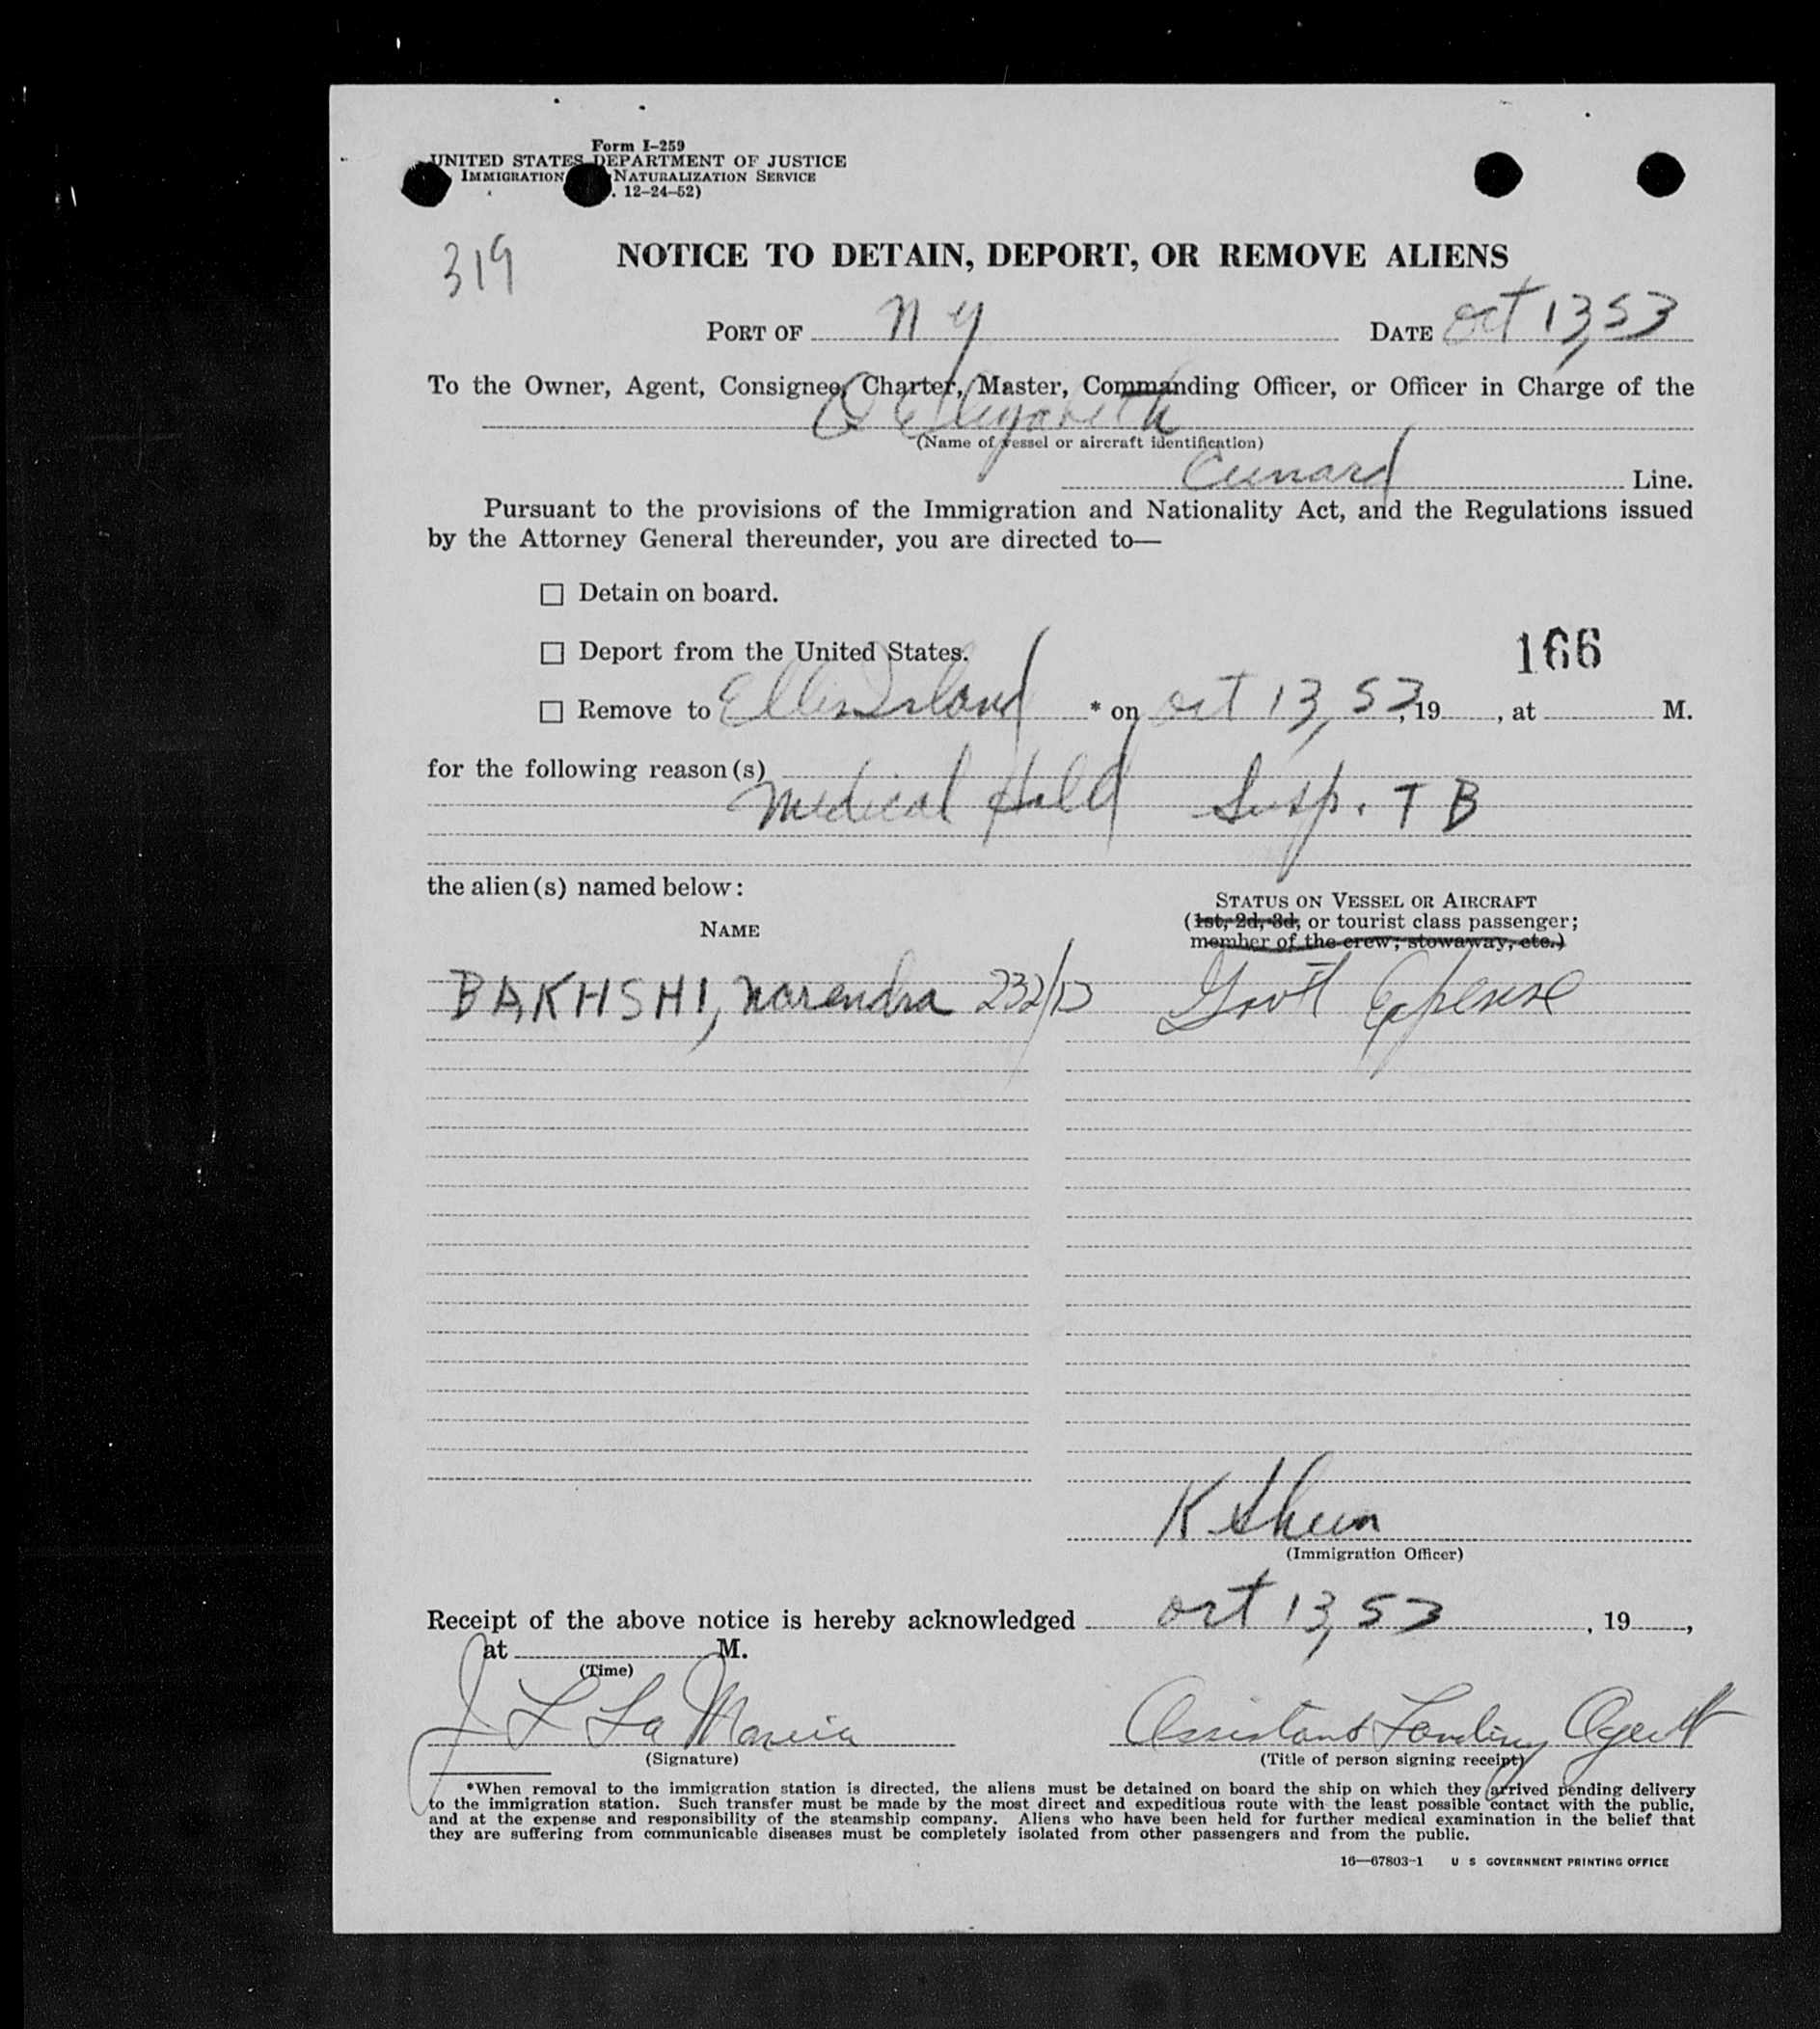 Form I-259
UNITED STATES DEPARTMENT OF JUSTICE
IMMIGRATION NATURALIZATION SERVICE
. 12-24-52)
319
NOTICE TO DETAIN, DEPORT, OR REMOVE ALIENS
PORT OF N Y DATE Oct 13, 53
To the Owner, Agent, Consignee, Charter, Master, Commanding Officer, or Officer in Charge of the
Q Elizabeth
(Name of vessel or aircraft identification)
Cunard Line.
Pursuant to the provisions of the Immigration and Nationality Act, and the Regulations issued
by the Attorney General thereunder, you are directed to—
☐ Detain on board.
☐ Deport from the United States.
166
☐ Remove to Ellis Island * on Oct 13, 53, 19 , at M.
for the following reason(s)
Medical Hold Susp. T B
the alien(s) named below:
NAME
STATUS ON VESSEL OR AIRCRAFT
(1st, 2d, 3d, or tourist class passenger;
member of the crew; stowaway, etc.)
BAKHSHI, Narendra 232/13 Gov't Expense
K Shein
(Immigration Officer)
Receipt of the above notice is hereby acknowledged Oct 13, 53 , 19 ,
at M.
(Time)
J L La Assistant Landing Agent
(Signature) (Title of person signing receipt)
*When removal to the immigration station is directed, the aliens must be detained on board the ship on which they arrived pending delivery
to the immigration station. Such transfer must be made by the most direct and expeditious route with the least possible contact with the public,
and at the expense and responsibility of the steamship company. Aliens who have been held for further medical examination in the belief that
they are suffering from communicable diseases must be completely isolated from other passengers and from the public.
16—67803-1 U S GOVERNMENT PRINTING OFFICE